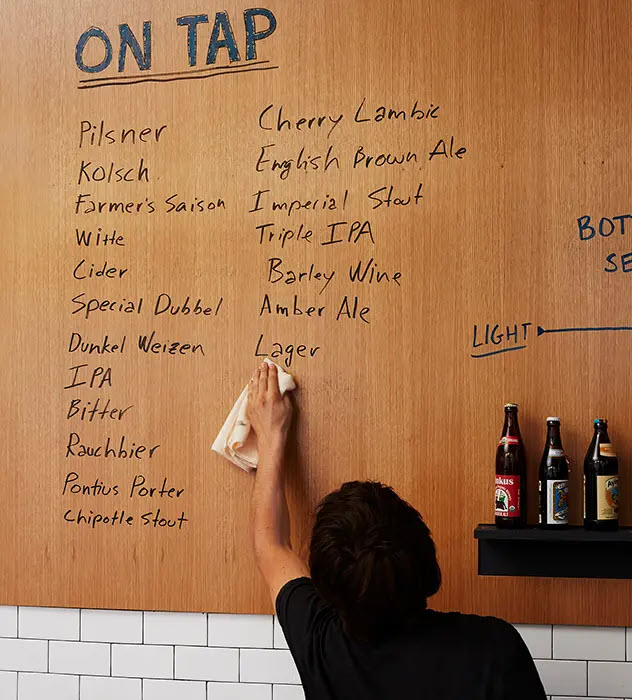 ON TAP
Pilsner
Kölsch
Farmer's Saison
Witte
Cider
Special Dubbel
Dunkel Weizen
IPA
Bitter
Rauchbier
Pontius Porter
Chipotle Stout
Cherry Lambic
English Brown Ale
Imperial Stout
Triple IPA
Barley Wine
Amber Ale
Lager
BOT
SE
LIGHT